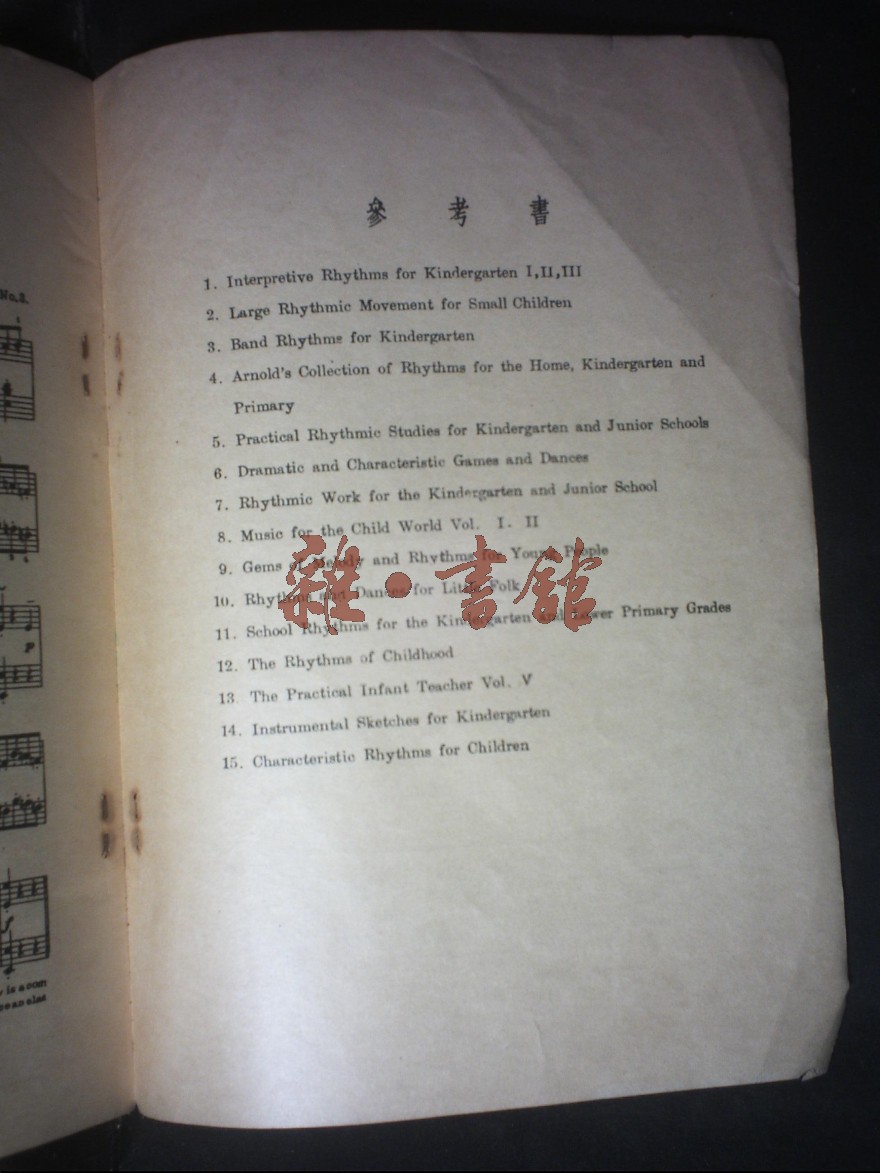 參 考 書
1. Interpretive Rhythms for Kindergarten I,II,III
2. Large Rhythmic Movement for Small Children
3. Band Rhythms for Kindergarten
4. Arnold's Collection of Rhythms for the Home, Kindergarten and
Primary
5. Practical Rhythmic Studies for Kindergarten and Junior Schools
6. Dramatic and Characteristic Games and Dances
7. Rhythmic Work for the Kindergarten and Junior School
8. Music for the Child World Vol. I. II
9. Gems of Melody and Rhythms for Young People
10. Rhythms and Dances for Little Folk
11. School Rhythms for the Kindergarten and Lower Primary Grades
12. The Rhythms of Childhood
13. The Practical Infant Teacher Vol. V
14. Instrumental Sketches for Kindergarten
15. Characteristic Rhythms for Children
雜·書館
No.3.
is a com